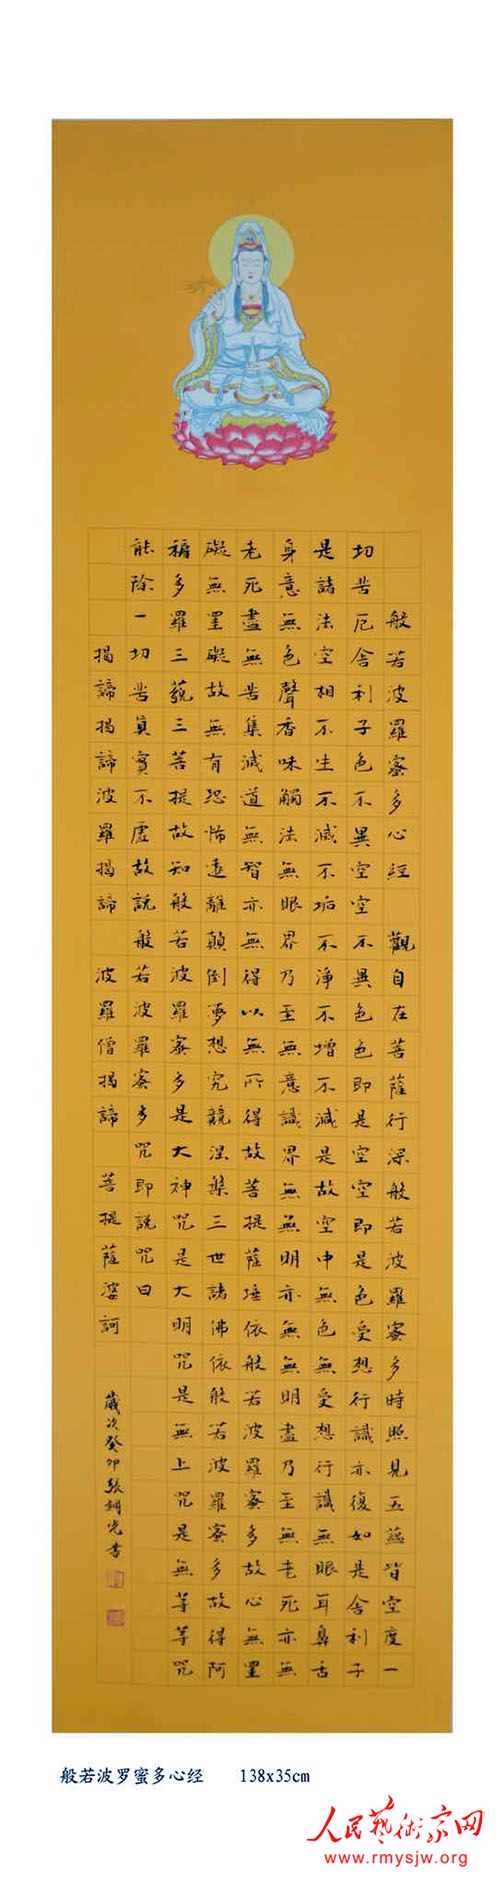 般若波羅蜜多心經 觀自在菩薩行深般若波羅蜜多時照見五蘊皆空度一
切苦厄舍利子色不異空空不異色色即是空空即是色受想行識亦復如是舍利子
是諸法空相不生不滅不垢不淨不增不減是故空中無色無受想行識無眼耳鼻舌
身意無色聲香味觸法無眼界乃至無意識界無無明亦無無明盡乃至無老死亦無
老死盡無苦集滅道無智亦無得以無所得故菩提薩埵依般若波羅蜜多故心無罣
礙無罣礙故無有恐怖遠離顛倒夢想究競涅槃三世諸佛依般若波羅蜜多故得阿
耨多羅三藐三菩提故知般若波羅蜜多是大神咒是大明咒是無上咒是無等等咒
能除一切苦眞實不虛故說般若波羅蜜多咒即說咒曰
揭諦揭諦波羅揭諦 波羅僧揭諦 菩提薩婆訶
歲次癸卯張光書
般若波罗蜜多心经 138x35cm
人民藝術家网
www.rmysjw.org